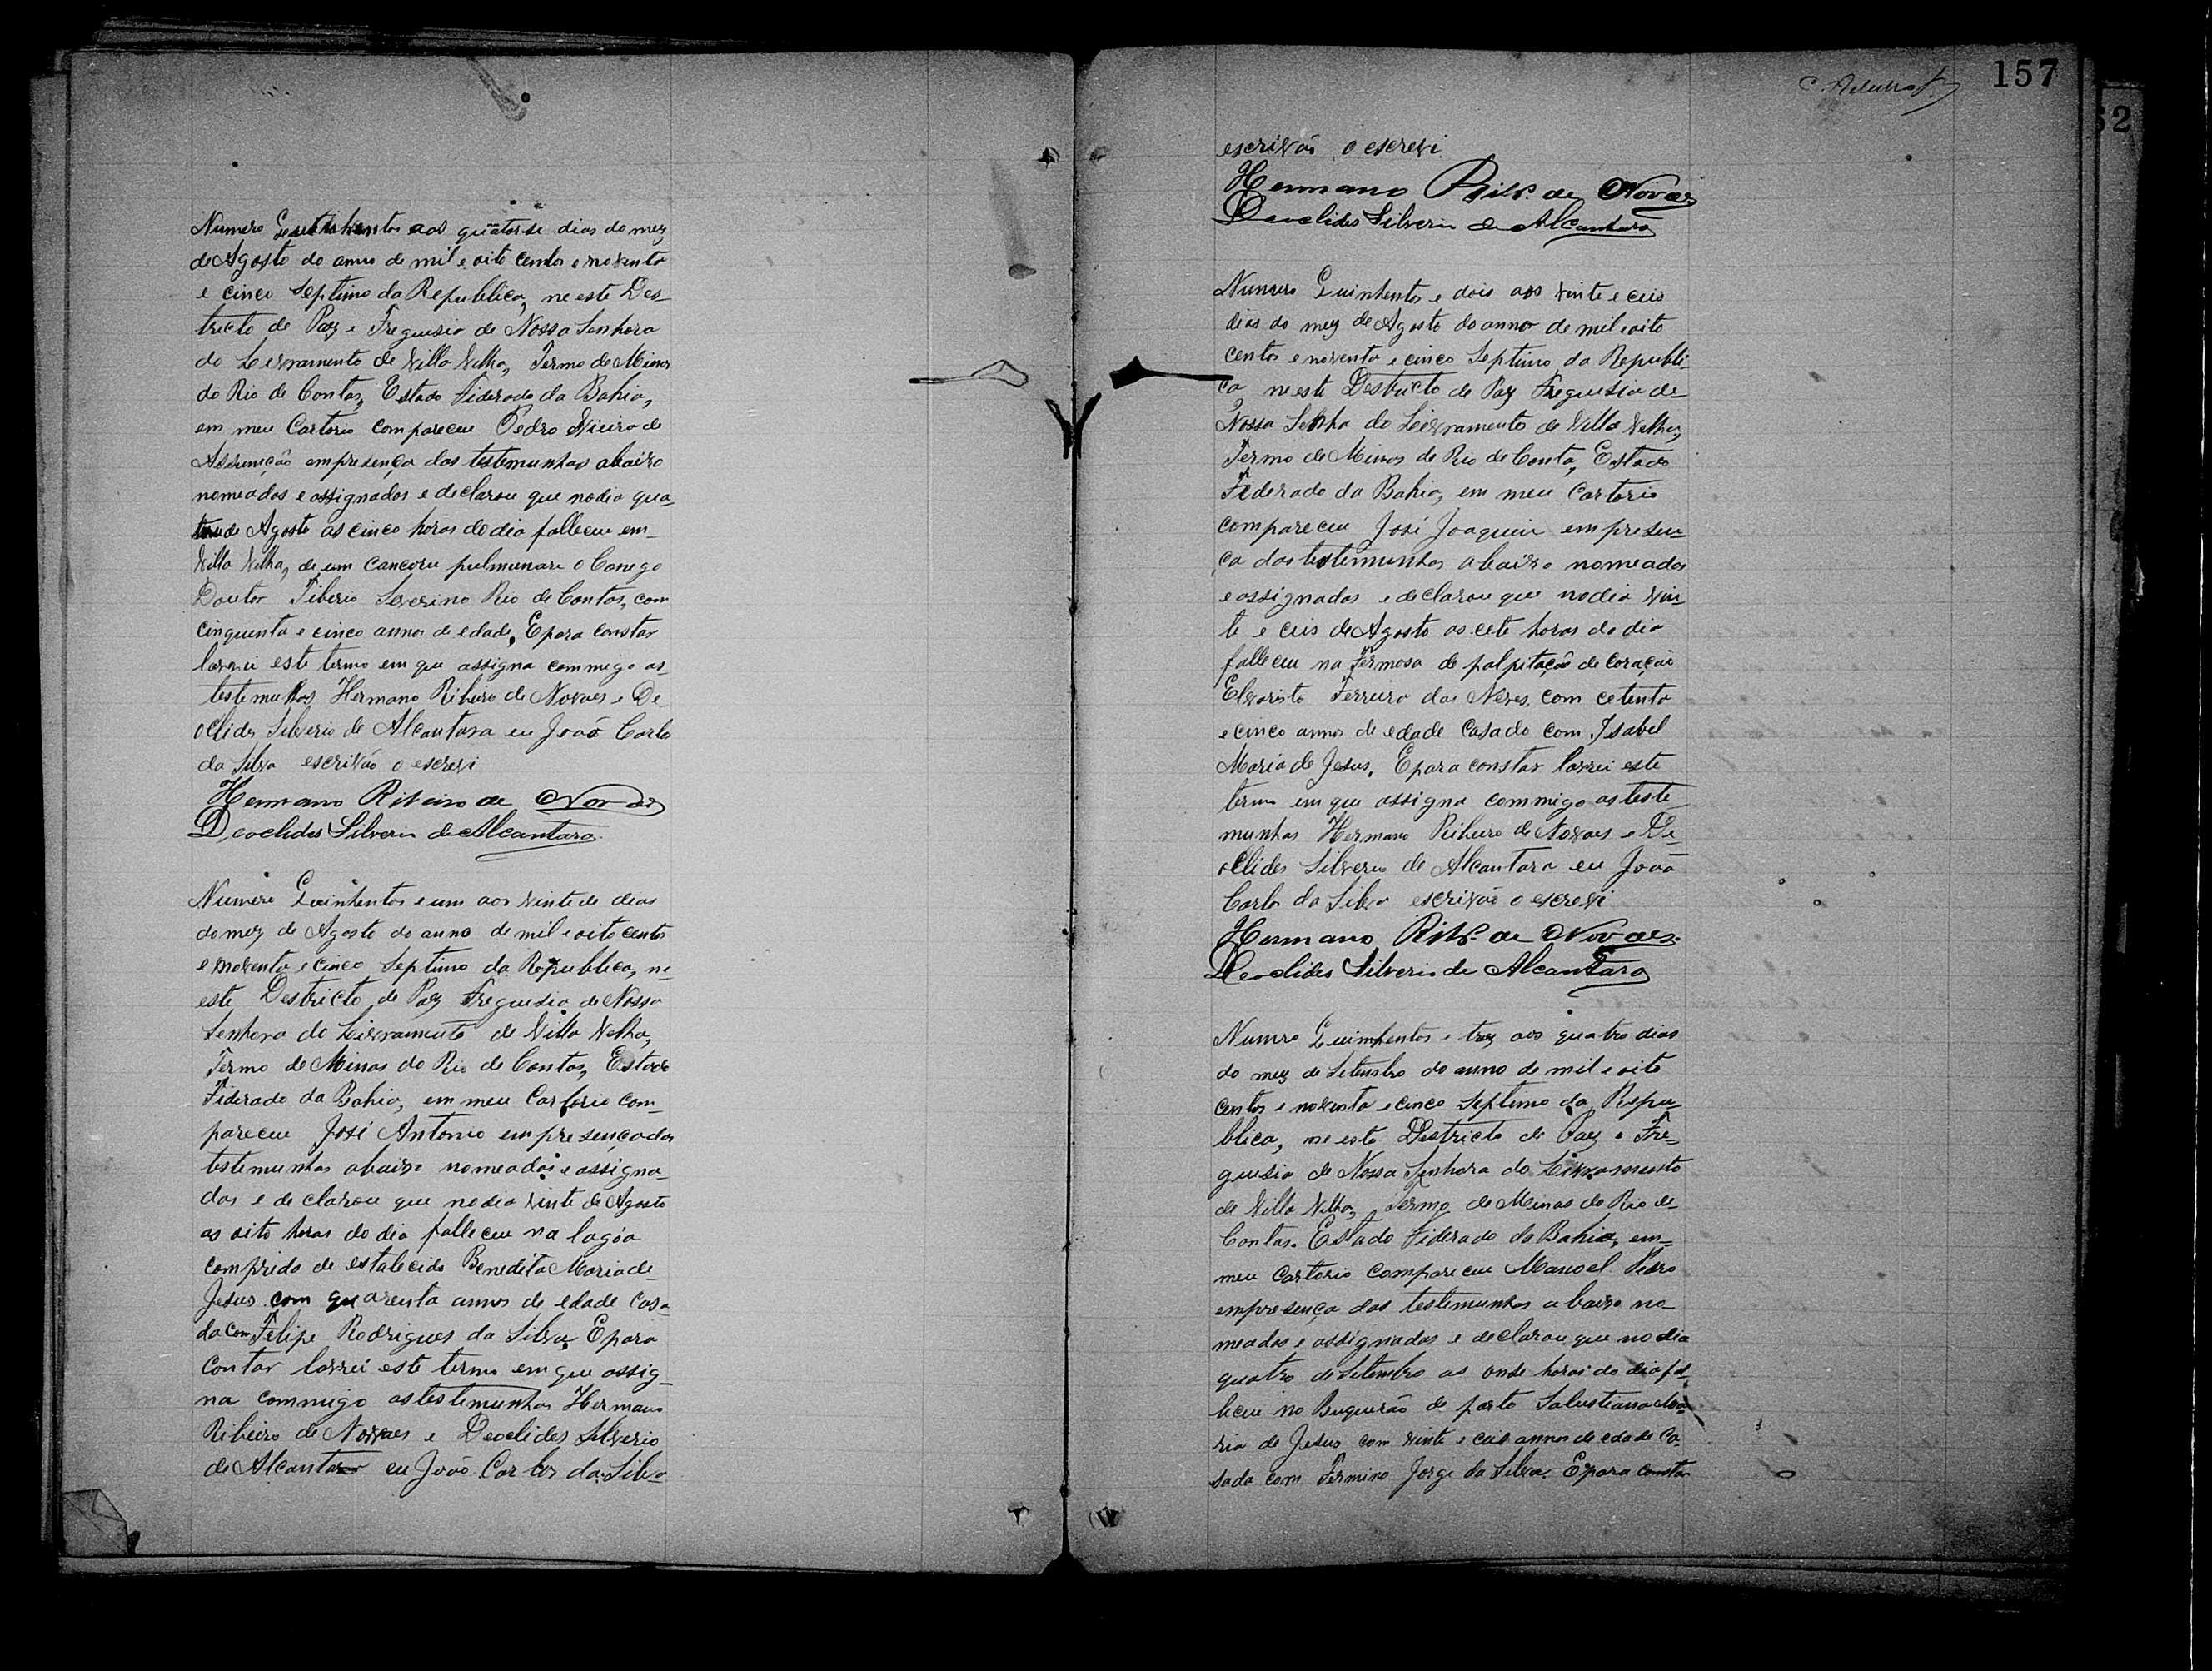 Numero Quinhentos aos quatorse dias do mez
de Agosto do anno de mil e oito centos e noventa
e cinco Septimo da Republica, neeste Des-
tricto de Paz e Freguesia de Nossa Senhora
do Livramento de Villa Velha, Termo de Minas
do Rio de Contas, Estado Federado da Bahia,
em meu Cartorio compareceu Pedro Vieira de
Assumção empresença das testemunhas abaixo
nomeados e assignados e declarou que no dia qua-
torse de Agosto as cinco horas do dia falleceu em
Villa Velha, de um cancoru pulmunare o Conego
Doutor Tiberio Severino Rio de Contas, com
cinquenta e cinco annos de edade, Epara constar
lavrei este termo em que assigna commigo as
testemulhas Hermano Ribeiro de Novaes e De
oclides Silverio de Alcantara eu João Carlos
da Silva escrivão o escrevi
Hermano Ribeiro de Novaes
Deoclides Silverio de Alcantara
Numero Quinhentos e um aos vinte de dias
do mez de Agosto do anno de mil e oito centos
e noventa e cinco Septimo da Republica, ne
este Destricto de Paz Freguesia de Nossa
Senhora do Livramento de Villa Velha,
Termo de Minas do Rio de Contas, Estado
Federado da Bahia, em meu Cartorio com-
pareceu José Antonio empresença das
testemunhas abaixo nomeados e assigna-
dos e declarou que no dia vinte de Agosto
as oito horas do dia falleceu na lagôa
comprida de estalecido Benedita Maria de
Jesus com quarenta annos de edade casa
da com Felipe Rodrigues da Silva, Epara
contar lavrei este termo em que assig-
na commigo as testemunhas Hermano
Ribeiro de Novaes e Deoclides Silverio
de Alcantara eu João Carlos da Silva
157
escrivão o escrevi
Hermano Ribr. de Novaes
Deoclides Silverio de Alcantara
Numero Quinhentos e dois aos vinte e ceis
dias do mez de Agosto do anno de mil e oito
centos e noventa e cinco Septimo da Republi-
ca neeste Destricto de Paz Freguesia de
Nossa Senha do Livramento de Villa Velha,
Termo de Minas de Rio de Conta, Estado
Federado da Bahia, em meu Cartorio
compareceu José Joaquim empresen-
ça das testemunhas abaixo nomeados
e assignados e declarou que no dia vin-
te e ceis de Agosto as cete horas do dia
falleceu na Fermosa de palpitação de coração
Elvaristo Ferreira das Neves, com cetenta
e cinco annos de edade casado com Isabel
Maria de Jesus, Epara constar lavrei este
termo em que assigna commigo as teste
munhas Hermano Ribeiro de Novaes e De
oclides Silverio de Alcantara eu João
Carlos da Silva escrivão o escrevi
Hermano Ribr. de Novaes
Deoclides Silverio de Alcantara
Numero Quinhentos e trez aos quatro dias
do mez de Setembro do anno de mil e oito
centos e noventa e cinco Septimo da Repu-
blica, neeste Destricto de Paz e Fre-
guesia de Nossa Senhora do Livramento
de Villa Velha, Termo de Minas do Rio de
Contas. Estado Federado da Bahia, em
meu Cartorio compareceu Manoel Pedro
empresença das testemunhas abaixo no
meados e assignados e declarou que no dia
quatro de Setembro as onse horas do dia fal
leceu no Buquerão de parto Salustiana Ma-
ria de Jesus com vinte e ceis annos de edade Ca-
sada com Fermino Jorge da Silva. Epara constar